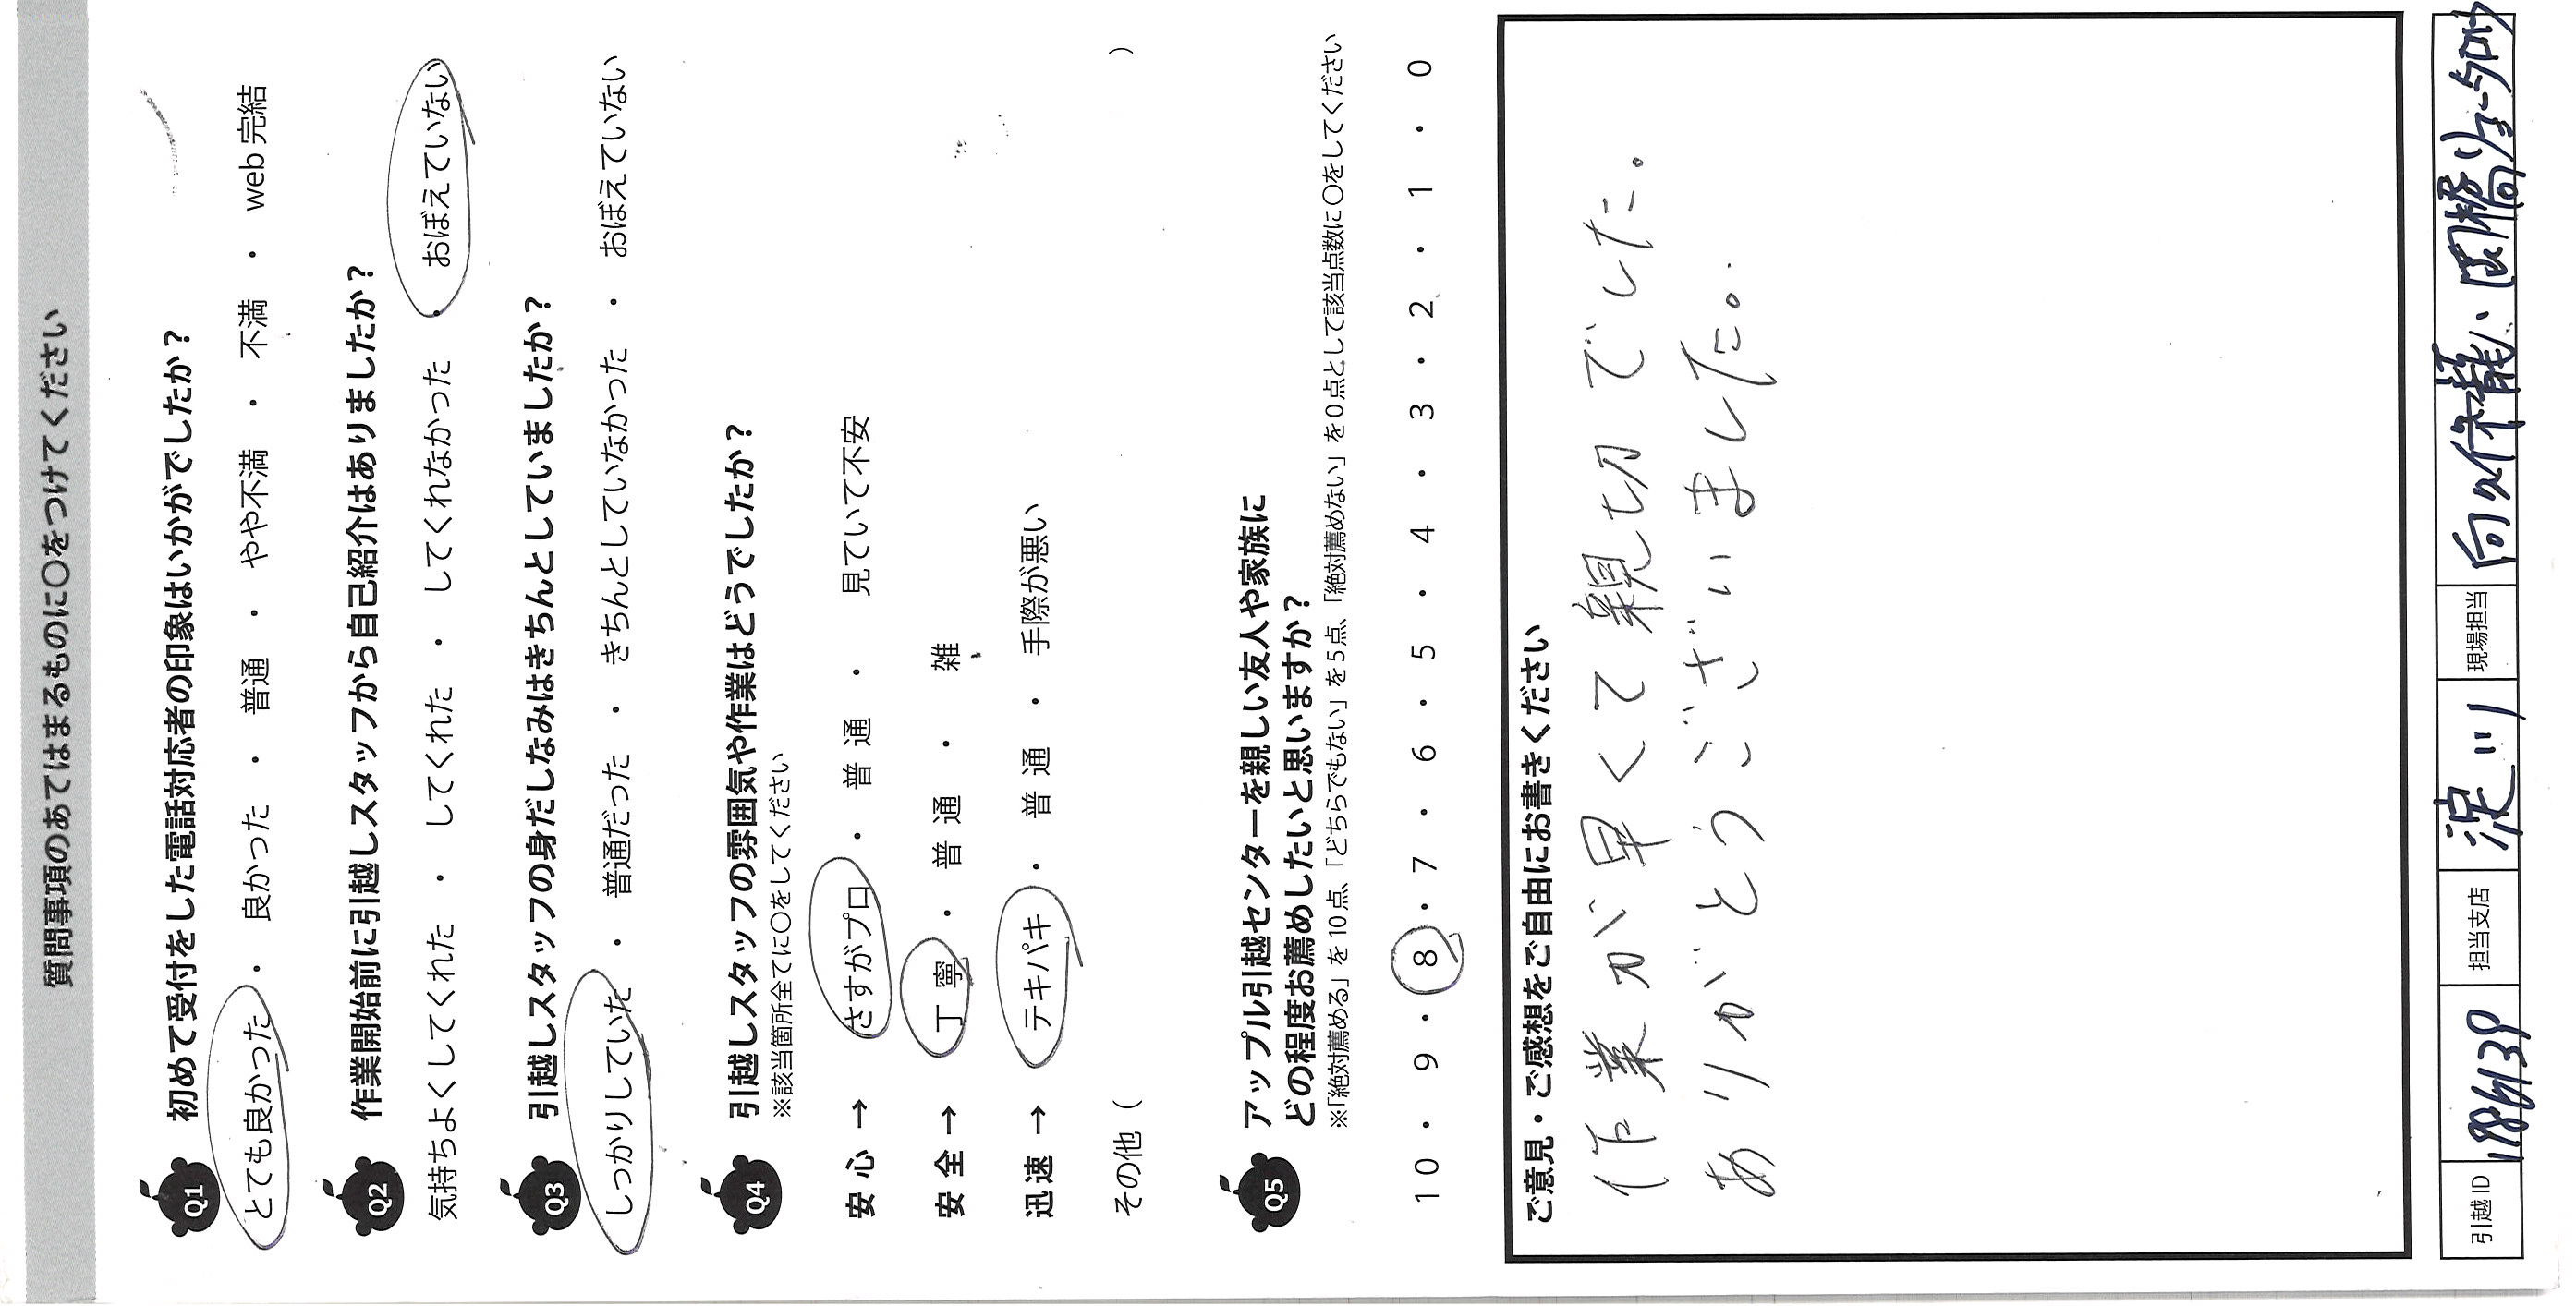 質問事項のあてはまるものに〇をつけてください
Q1 初めて受付をした電話対応者の印象はいかがでしたか？
とても良かった ・ 良かった ・ 普通 ・ やや不満 ・ 不満 ・ web完結
Q2 作業開始前に引越しスタッフから自己紹介はありましたか？
気持ちよくしてくれた ・ してくれた ・ してくれなかった ・ おぼえていない
Q3 引越しスタッフの身だしなみはきちんとしていましたか？
しっかりしていた ・ 普通だった ・ きちんとしていなかった ・ おぼえていない
Q4 引越しスタッフの雰囲気や作業はどうでしたか？
※該当箇所全てに〇をしてください
安心 → さすがプロ ・ 普通 ・ 見ていて不安
安全 → 丁寧 ・ 普通 ・ 雑
迅速 → テキパキ ・ 普通 ・ 手際が悪い
その他（ ）
Q5 アップル引越センターを親しい友人や家族に
どの程度お薦めしたいと思いますか？
※「絶対薦める」を10点、「どちらでもない」を5点、「絶対薦めない」を0点として該当点数に〇をしてください
10 ・ 9 ・ 8 ・ 7 ・ 6 ・ 5 ・ 4 ・ 3 ・ 2 ・ 1 ・ 0
ご意見・ご感想をご自由にお書きください
作業が早くて親切でした。
ありがとうございました。
引越ID 担当支店 現場担当